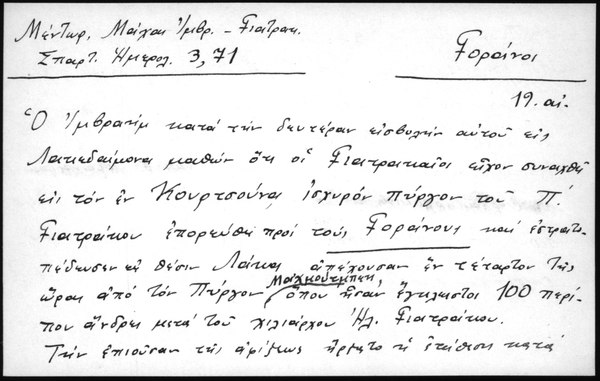 Μέντωρ, Μάχαι Ἰμβρ. - Γιατρακ.
Σπαρτ. Ἡμερολ. 3, 71
Γοράνοι
19. αἰ.
Ὁ Ἰμβραήμ κατά τήν δευτέραν εἰσβολήν αὐτοῦ εἰς
Λακεδαίμονα μαθών ὅτι οἱ Γιατρακαῖοι εἶχον συναχθῆ
εἰς τόν ἐν Κουρτσούνα ἰσχυρόν πύργον τοῦ Π.
Γιατράκου ἐπορεύθη πρός τούς Γοράνους καί ἐστρατο-
πέδευσεν εἰς θέσιν Λάκαι ἀπέχουσαν ἕν τέταρτον τῆς
ὥρας ἀπό τόν Πύργον Μαχμούτμπεη ὅπου ἦσαν ἔγκλειστοι 100 περί-
που ἄνδρες μετά τοῦ χιλιάρχου Ἠλ. Γιατράκου.
Τήν ἐπιοῦσαν τῆς ἀφίξεως ἤρξατο ἡ ἐπίθεσις κατά